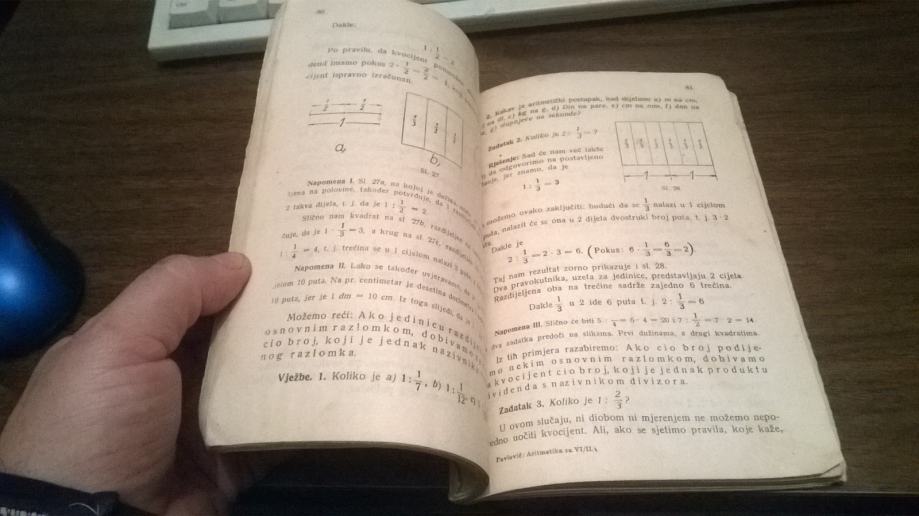 80
Dakle:
1 : 1/2 = 2
Po pravilu, da kvocijent
dend imamo pokus 2 · 1/2 = 2/2 = 1,
cijent ispravno izračunan.
1/2 1/2
1
a,
1/3 1/3 1/3
b,
Sl. 27
Napomena I. Sl. 27a, na kojoj je
na polovine, također potvrđuje, da
2 takva dijela, t. j. da je 1 : 1/2 = 2.
Slično nam kvadrat na sl. 27b,
čuje, da je 1 : 1/3 = 3, a krug na sl. 27c,
1 : 1/4 = 4, t. j. trećina se u 1 cijelom nalazi 3 puta
Napomena II. Lako se također uvjeravamo, da
jelom 10 puta. Na pr. centimetar je desetina
10 puta, jer je 1 dm = 10 cm. Iz toga slijedi, da je
Možemo reći: Ako jedinicu
osnovnim razlomkom, dobivamo
cio broj, koji je jednak
nog razlomka.
Vježbe. 1. Koliko je a) 1 : 1/7, b) 1 : 1/12,
81
2. Kakav je aritmetički postupak, kad dijelimo a) m na cm,
na dl, c) kg na g, d) Din na pare, e) cm na mm, f) dan na
stupnjeve na sekunde?
Zadatak 2. Koliko je 2 : 1/3 = ?
Rješenje: Sad će nam već lakše
da odgovorimo na postavljeno
jer znamo, da je
1 : 1/3 = 3
1 1
Sl. 28
možemo ovako zaključiti: budući da se 1/3 nalazi u 1 cijelom
puta, nalazit će se ona u 2 dijela dvostruki broj puta, t. j. 3 · 2
Dakle je
2 : 1/3 = 2 · 3 = 6. (Pokus: 6 · 1/3 = 6/3 = 2).
Taj nam rezultat zorno prikazuje i sl. 28.
Dva pravokutnika, uzeta za jedinice, predstavljaju 2 cijela.
Razdijeljena oba na trećine sadrže zajedno 6 trećina.
Dakle 1/3 u 2 ide 6 puta t. j. 2 : 1/3 = 6
Napomena III. Slično će biti 5 : 1/4 = 5 · 4 = 20 i 7 : 1/2 = 7 · 2 = 14.
dva zadatka predoči na slikama. Prvi dužinama, a drugi kvadratima.
Iz tih primjera razabiremo: Ako cio broj podije-
mo nekim osnovnim razlomkom, dobivamo
kvocijent cio broj, koji je jednak produktu
ividenda s nazivnikom divizora.
Zadatak 3. Koliko je 1 : 2/3 ?
U ovom slučaju, ni diobom ni mjerenjem ne možemo nepo-
edno uočiti kvocijent. Ali, ako se sjetimo pravila, koje kaže,
Pavlović: Aritmetika za VI/II.